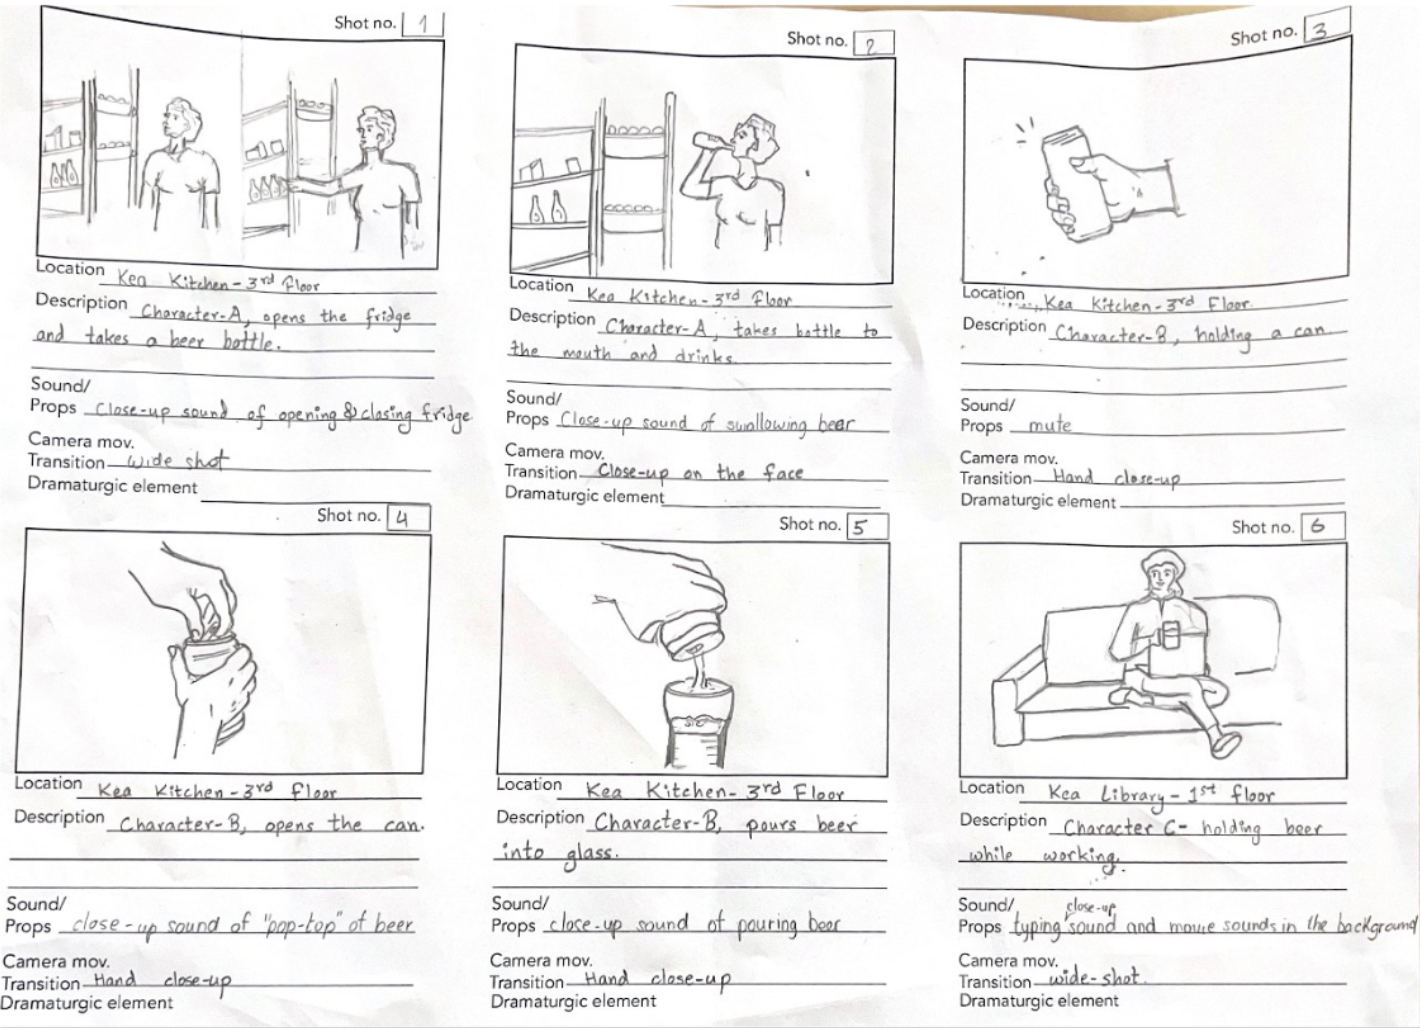 Shot no. 1
Location Kea Kitchen - 3rd Floor
Description Character-A, opens the fridge
and takes a beer bottle.
Sound/
Props Close-up sound of opening & closing fridge
Camera mov.
Transition wide shot
Dramaturgic element
Shot no. 2
Location Kea Kitchen - 3rd Floor
Description Character-A, takes bottle to
the mouth and drinks.
Sound/
Props Close-up sound of swallowing beer
Camera mov.
Transition Close-up on the face
Dramaturgic element
Shot no. 3
Location Kea Kitchen - 3rd Floor.
Description Character-B, holding a can.
Sound/
Props mute
Camera mov.
Transition Hand close-up
Dramaturgic element
Shot no. 4
Location Kea Kitchen - 3rd Floor
Description Character-B, opens the can.
Sound/
Props close-up sound of "pop-top" of beer
Camera mov.
Transition Hand close-up
Dramaturgic element
Shot no. 5
Location Kea Kitchen - 3rd Floor
Description Character-B, pours beer
into glass.
Sound/
Props close-up sound of pouring beer
Camera mov.
Transition Hand close-up
Dramaturgic element
Shot no. 6
Location Kea Library - 1st floor
Description Character C - holding beer
while working.
Sound/
Props typing close-up sound and mouse sounds in the background
Camera mov.
Transition wide-shot.
Dramaturgic element